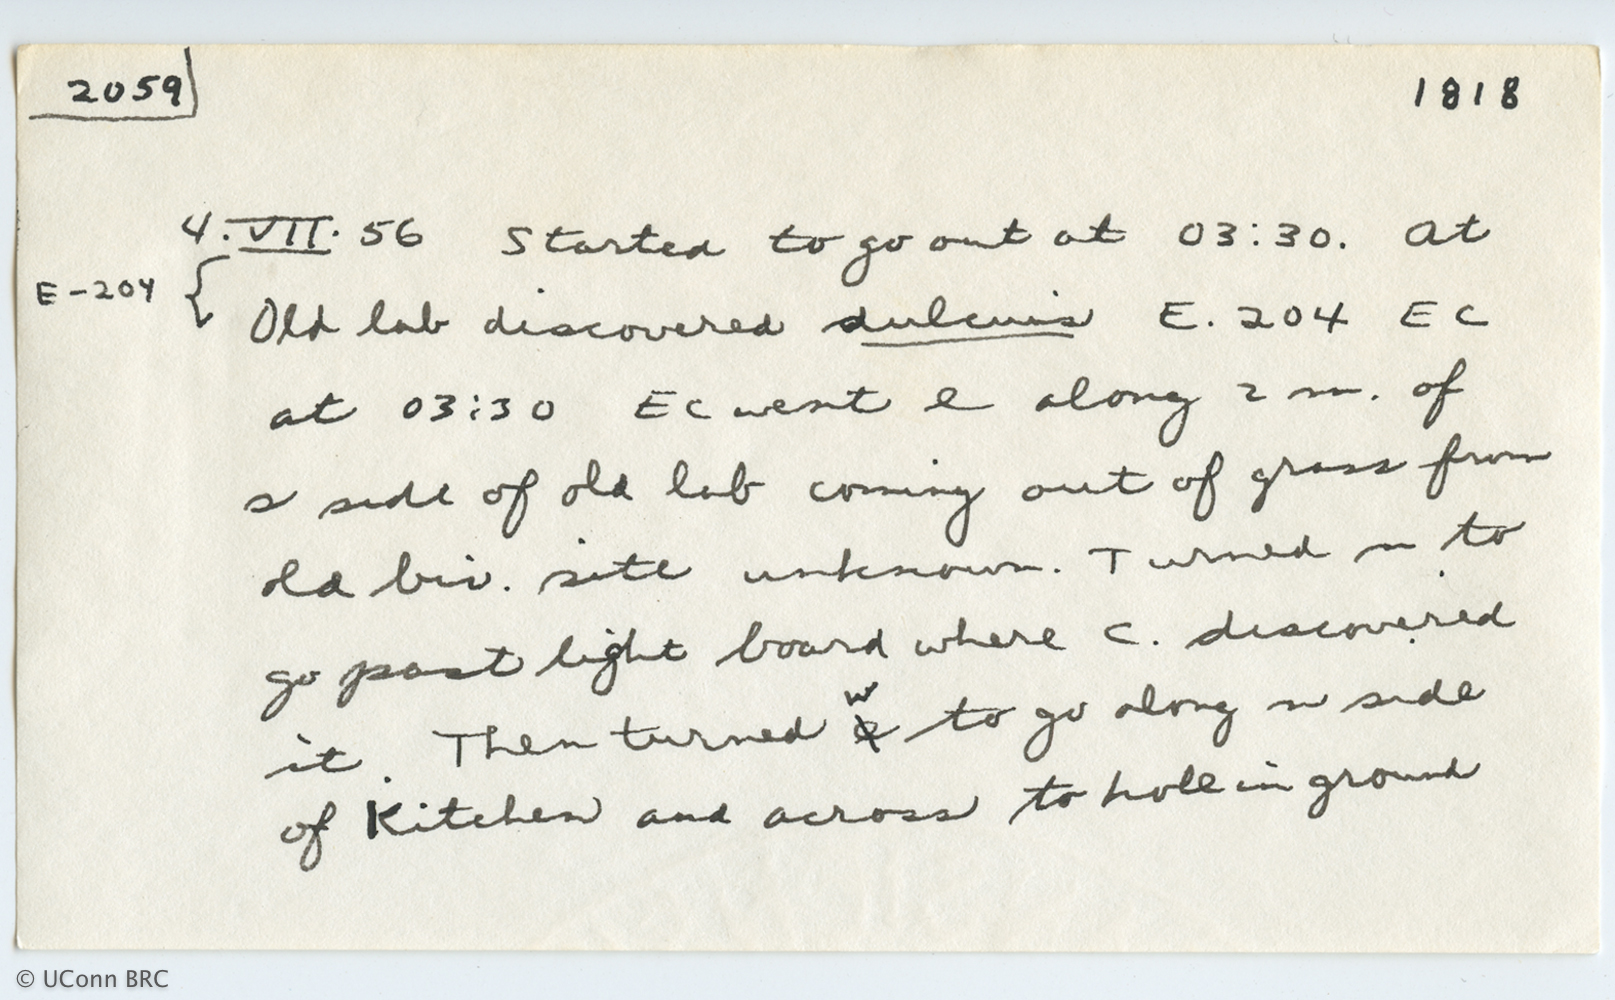 2059 1818
4.VII.56 Started to go out at 03:30. At
E-204 { Old lab discovered dulcius E. 204 EC
at 03:30 EC went e along 2 m. of
s side of old lab coming out of grass from
old biv. site unknown. Turned n to
go past light board where C. discovered
it. Then turned w to go along n side
of Kitchen and across to hole in ground
© UConn BRC